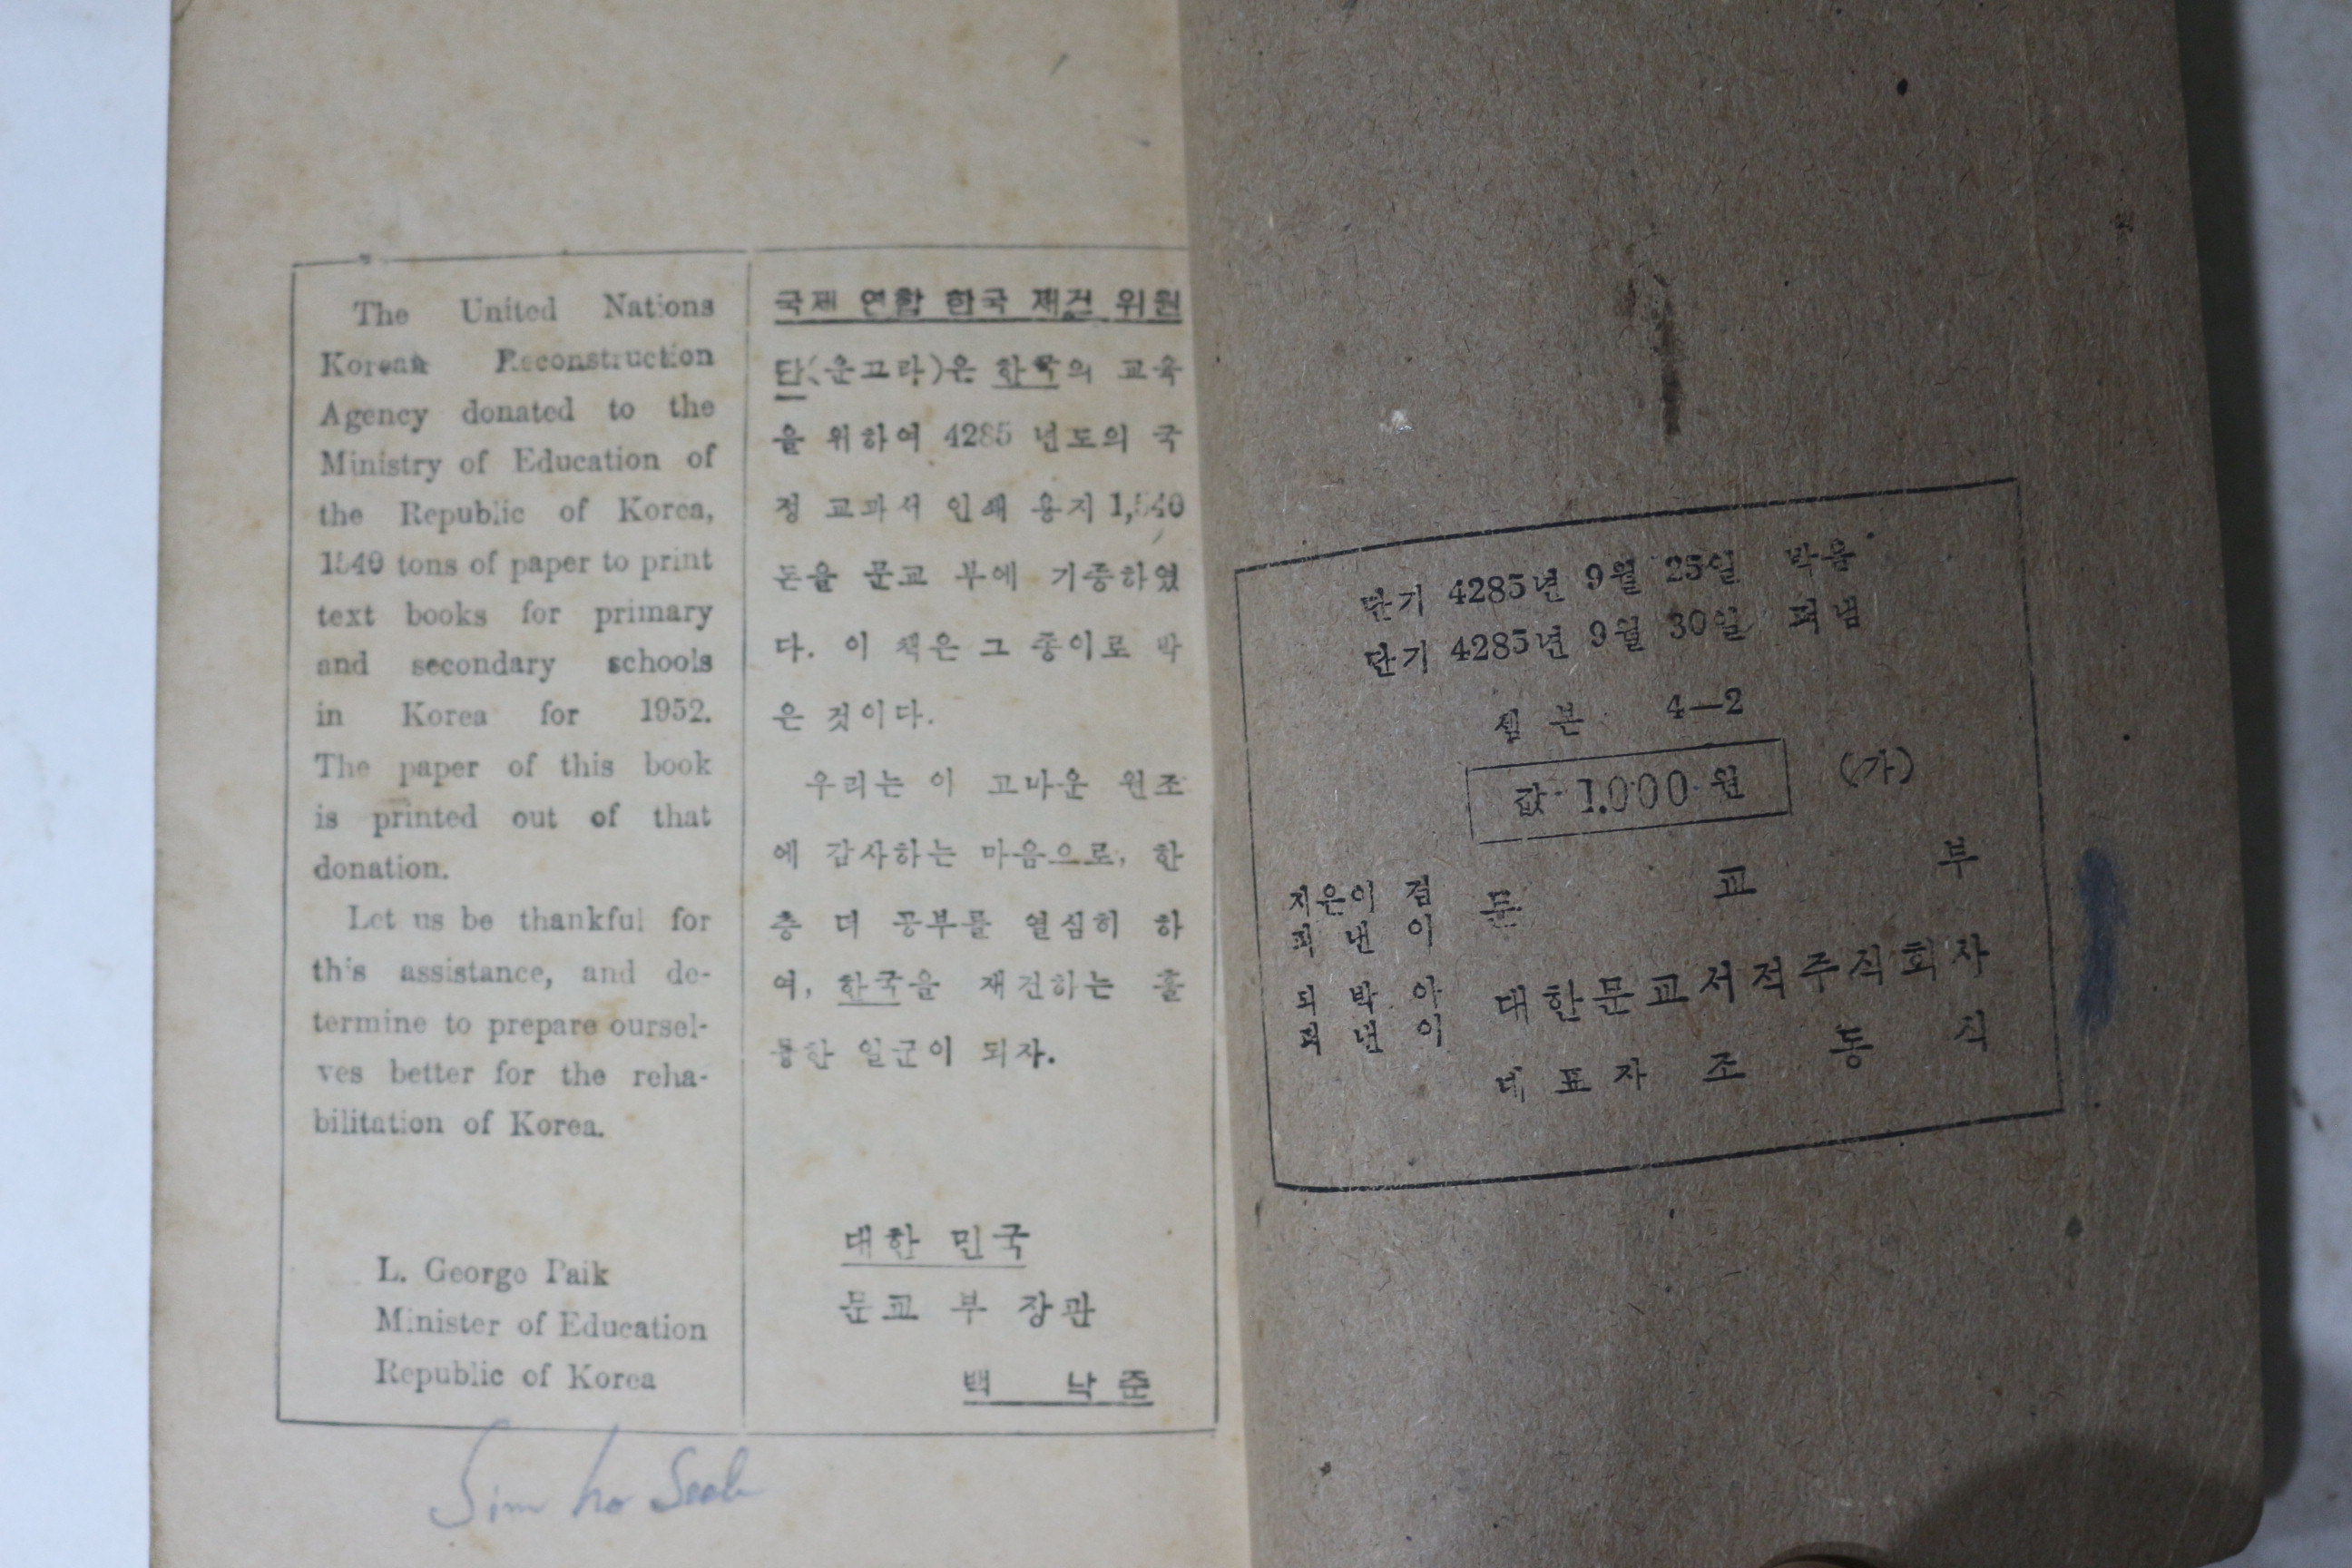 The United Nations
Korean Reconstruction
Agency donated to the
Ministry of Education of
the Republic of Korea,
1540 tons of paper to print
text books for primary
and secondary schools
in Korea for 1952.
The paper of this book
is printed out of that
donation.
Let us be thankful for
this assistance, and de-
termine to prepare oursel-
ves better for the reha-
bilitation of Korea.
L. George Paik
Minister of Education
Republic of Korea
국제 연합 한국 재건 위원
단(운끄라)은 한국의 교육
을 위하여 4285 년도의 국
정 교과서 인쇄 용지 1,540
톤을 문교 부에 기증하였
다. 이 책은 그 종이로 박
은 것이다.
우리는 이 고마운 원조
에 감사하는 마음으로, 한
층 더 공부를 열심히 하
여, 한국을 재건하는 훌
륭한 일군이 되자.
대한 민국
문교 부 장관
백 낙준
Sim ho
단기 4285년 9월 25일 박음
단기 4285년 9월 30일 펴냄
셈본 4—2
값 1.000원 (가)
지은이 겸
펴낸이
문교부
되박아
펴낸이
대한문교서적주식회사
대표자 조동식